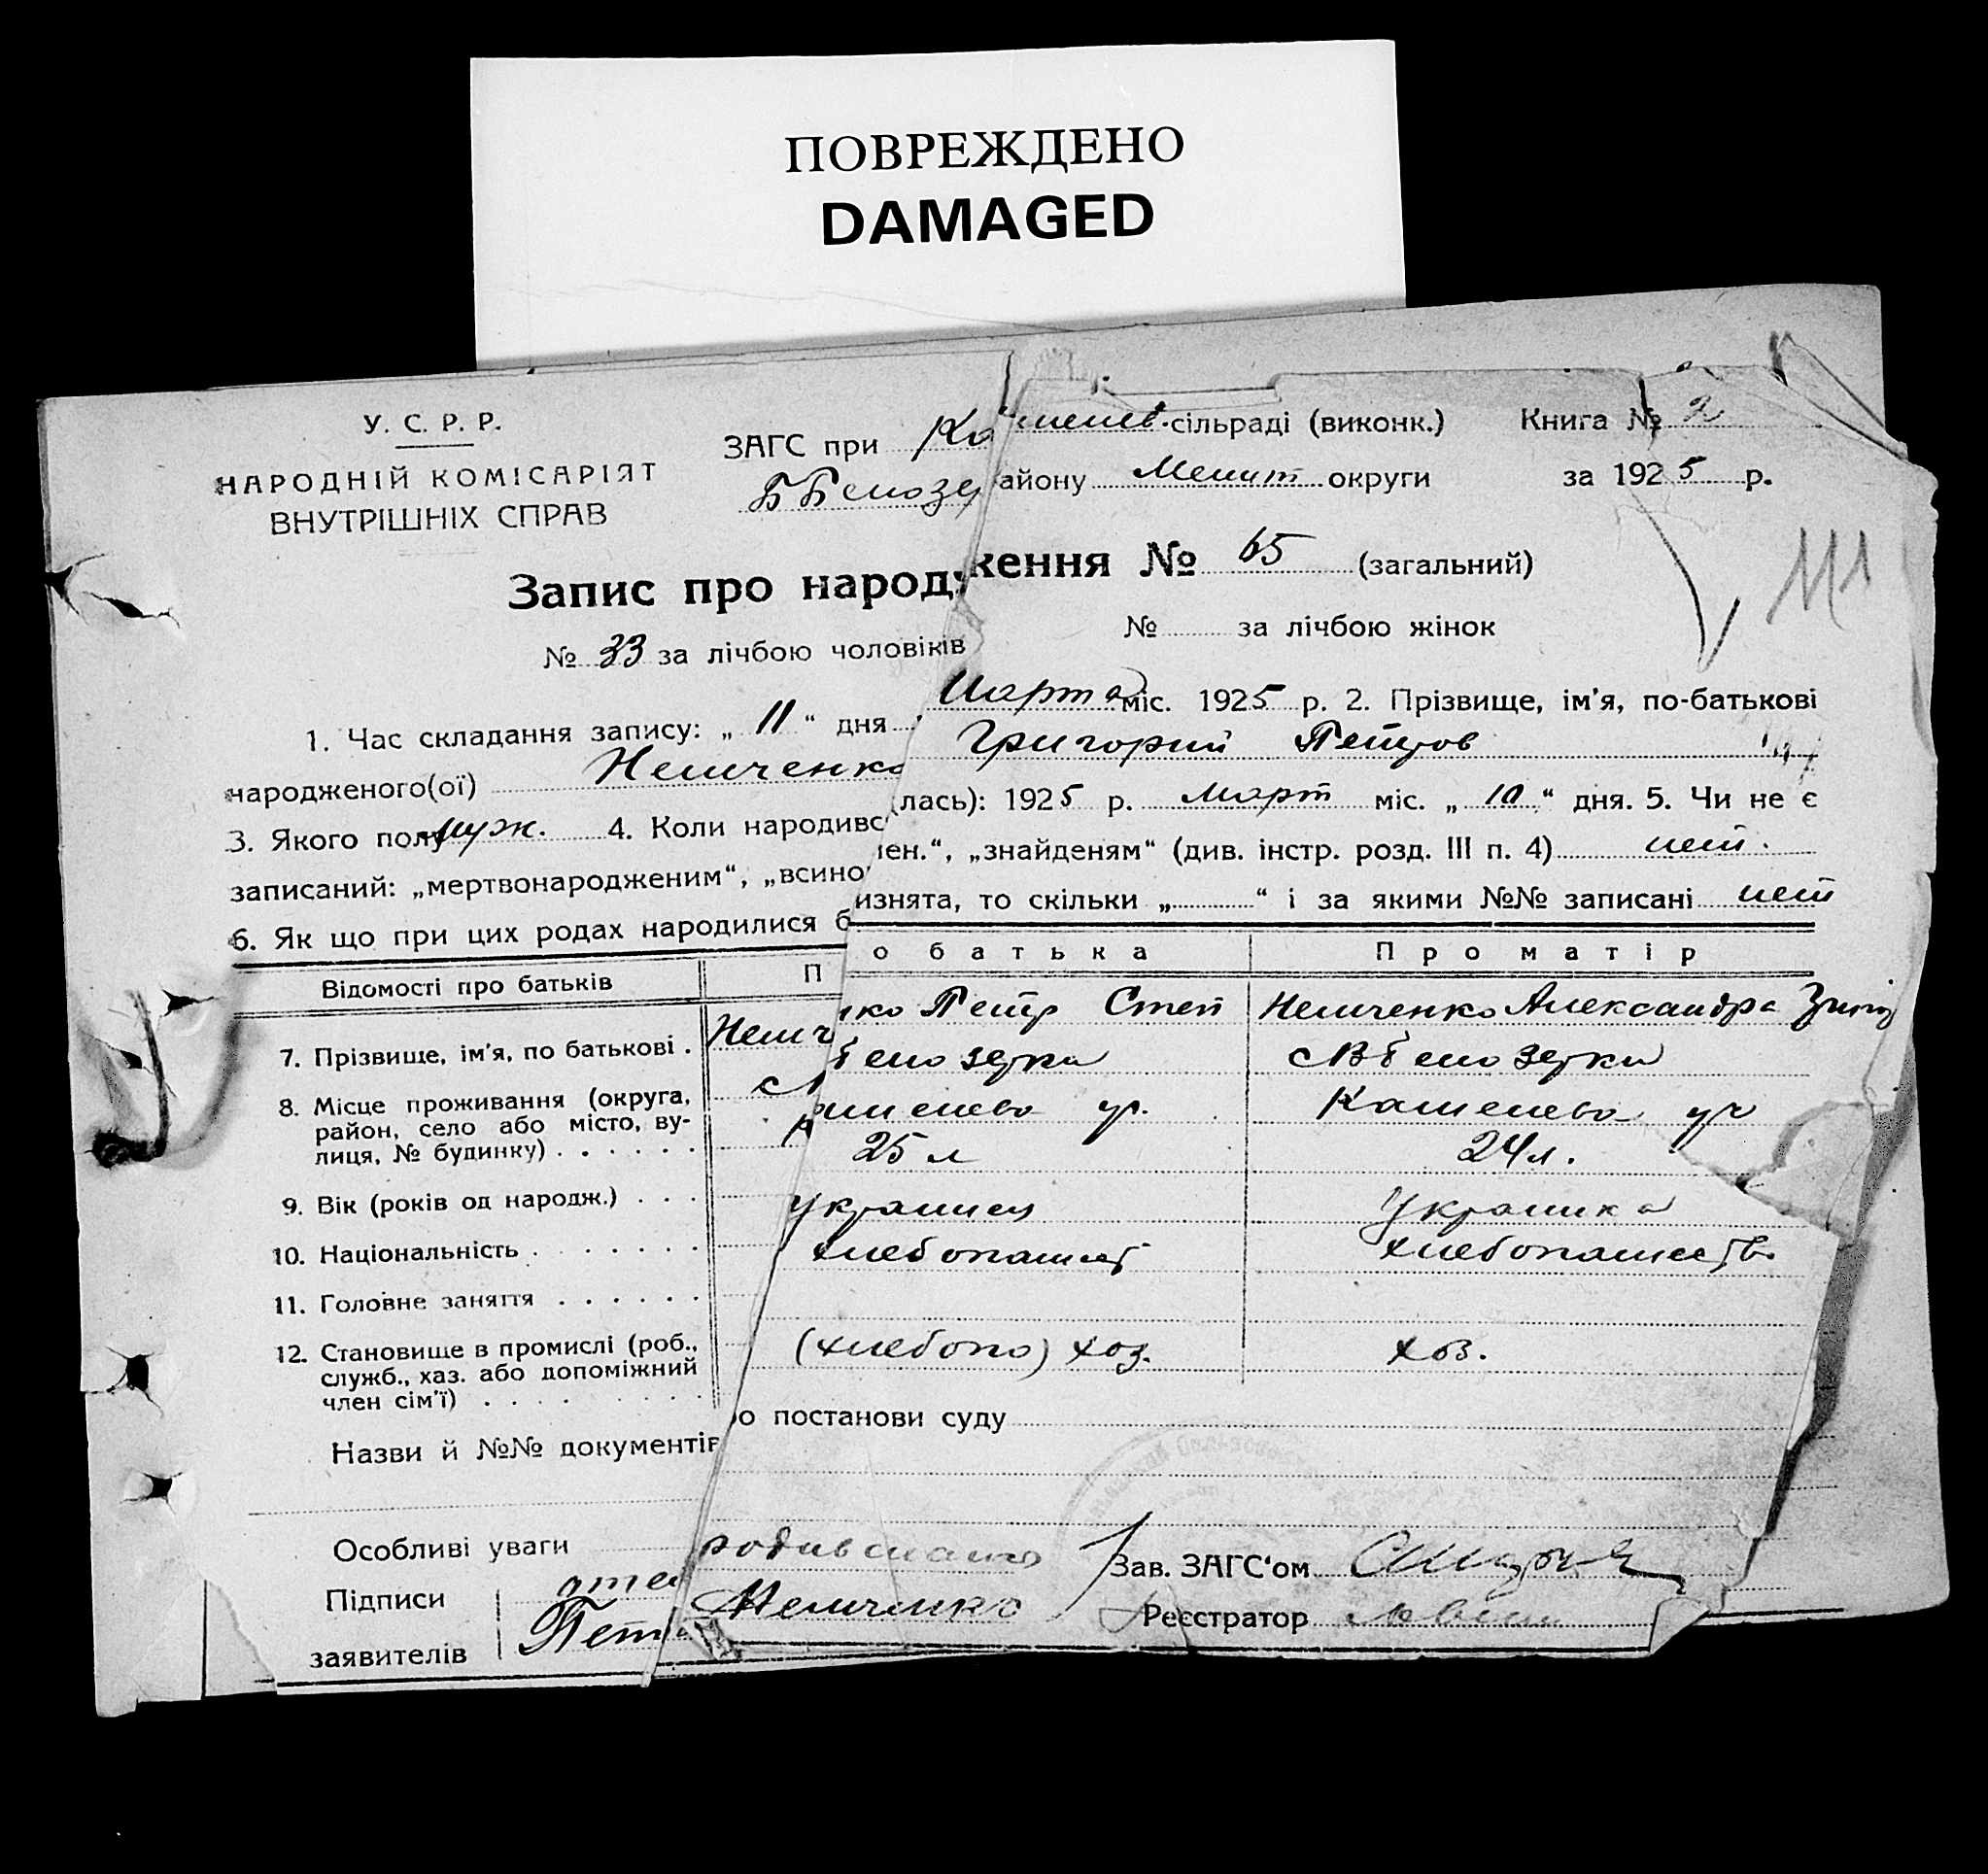 ПОВРЕЖДЕНО
DAMAGED
У. С. Р. Р.
НАРОДНІЙ КОМІСАРІЯТ
ВНУТРІШНІХ СПРАВ
ЗАГС при Ка сільраді (виконк.) Книга № 2
айону Мелит округи за 1925 р.
Запис про народження № 65 (загальний)
№ 33 за лічбою чоловіків № за лічбою жінок
1. Час складання запису: „ 11 “ дня Марта міс. 1925 р. 2. Прізвище, ім'я, по-батькові
народженого(ої) Немченко Григорий Петров
3. Якого полу муж. 4. Коли народивс лась): 1925 р. март міс. „ 10 “ дня. 5. Чи не є
записаний: „мертвонародженим“, „всино лен.“, „знайденям“ (див. інстр. розд. III п. 4) нет.
6. Як що при цих родах народилися б изнята, то скільки „ “ і за якими №№ записані нет
Відомості про батьків П о батька Про матір
7. Прізвище, ім'я, по батькові . Немч нко Петр Степ Немченко Александра
8. Місце проживання (округа, район, село або місто, вулиця, № будинку) . . . . . .
9. Вік (років од народж.) . . . 25 л 24 л.
10. Національність . . . . . . . украинец Украинка
11. Головне заняття . . . . . . хлебопашест хлебопашеств
12. Становище в промислі (роб., служб., хаз. або допоміжний член сім'ї) . . . . (хлебопа) хоз. хоз.
Назви й №№ документів ро постанови суду
Особливі уваги
Підписи отец Зав. ЗАГС‘ом
заявителів Петр Немченко Реєстратор